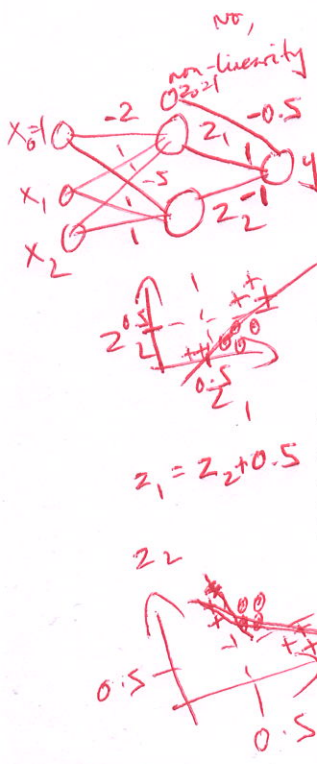 No,
non-linearity
z₀=1
x₀=1 -2 z₁ -0.5
1 1
x₁ -5 y
1 z₂ -1
x₂ 1
z₂ 0.5
0.5
z₁
z₁ = z₂+0.5
z₂
0.5
0.5